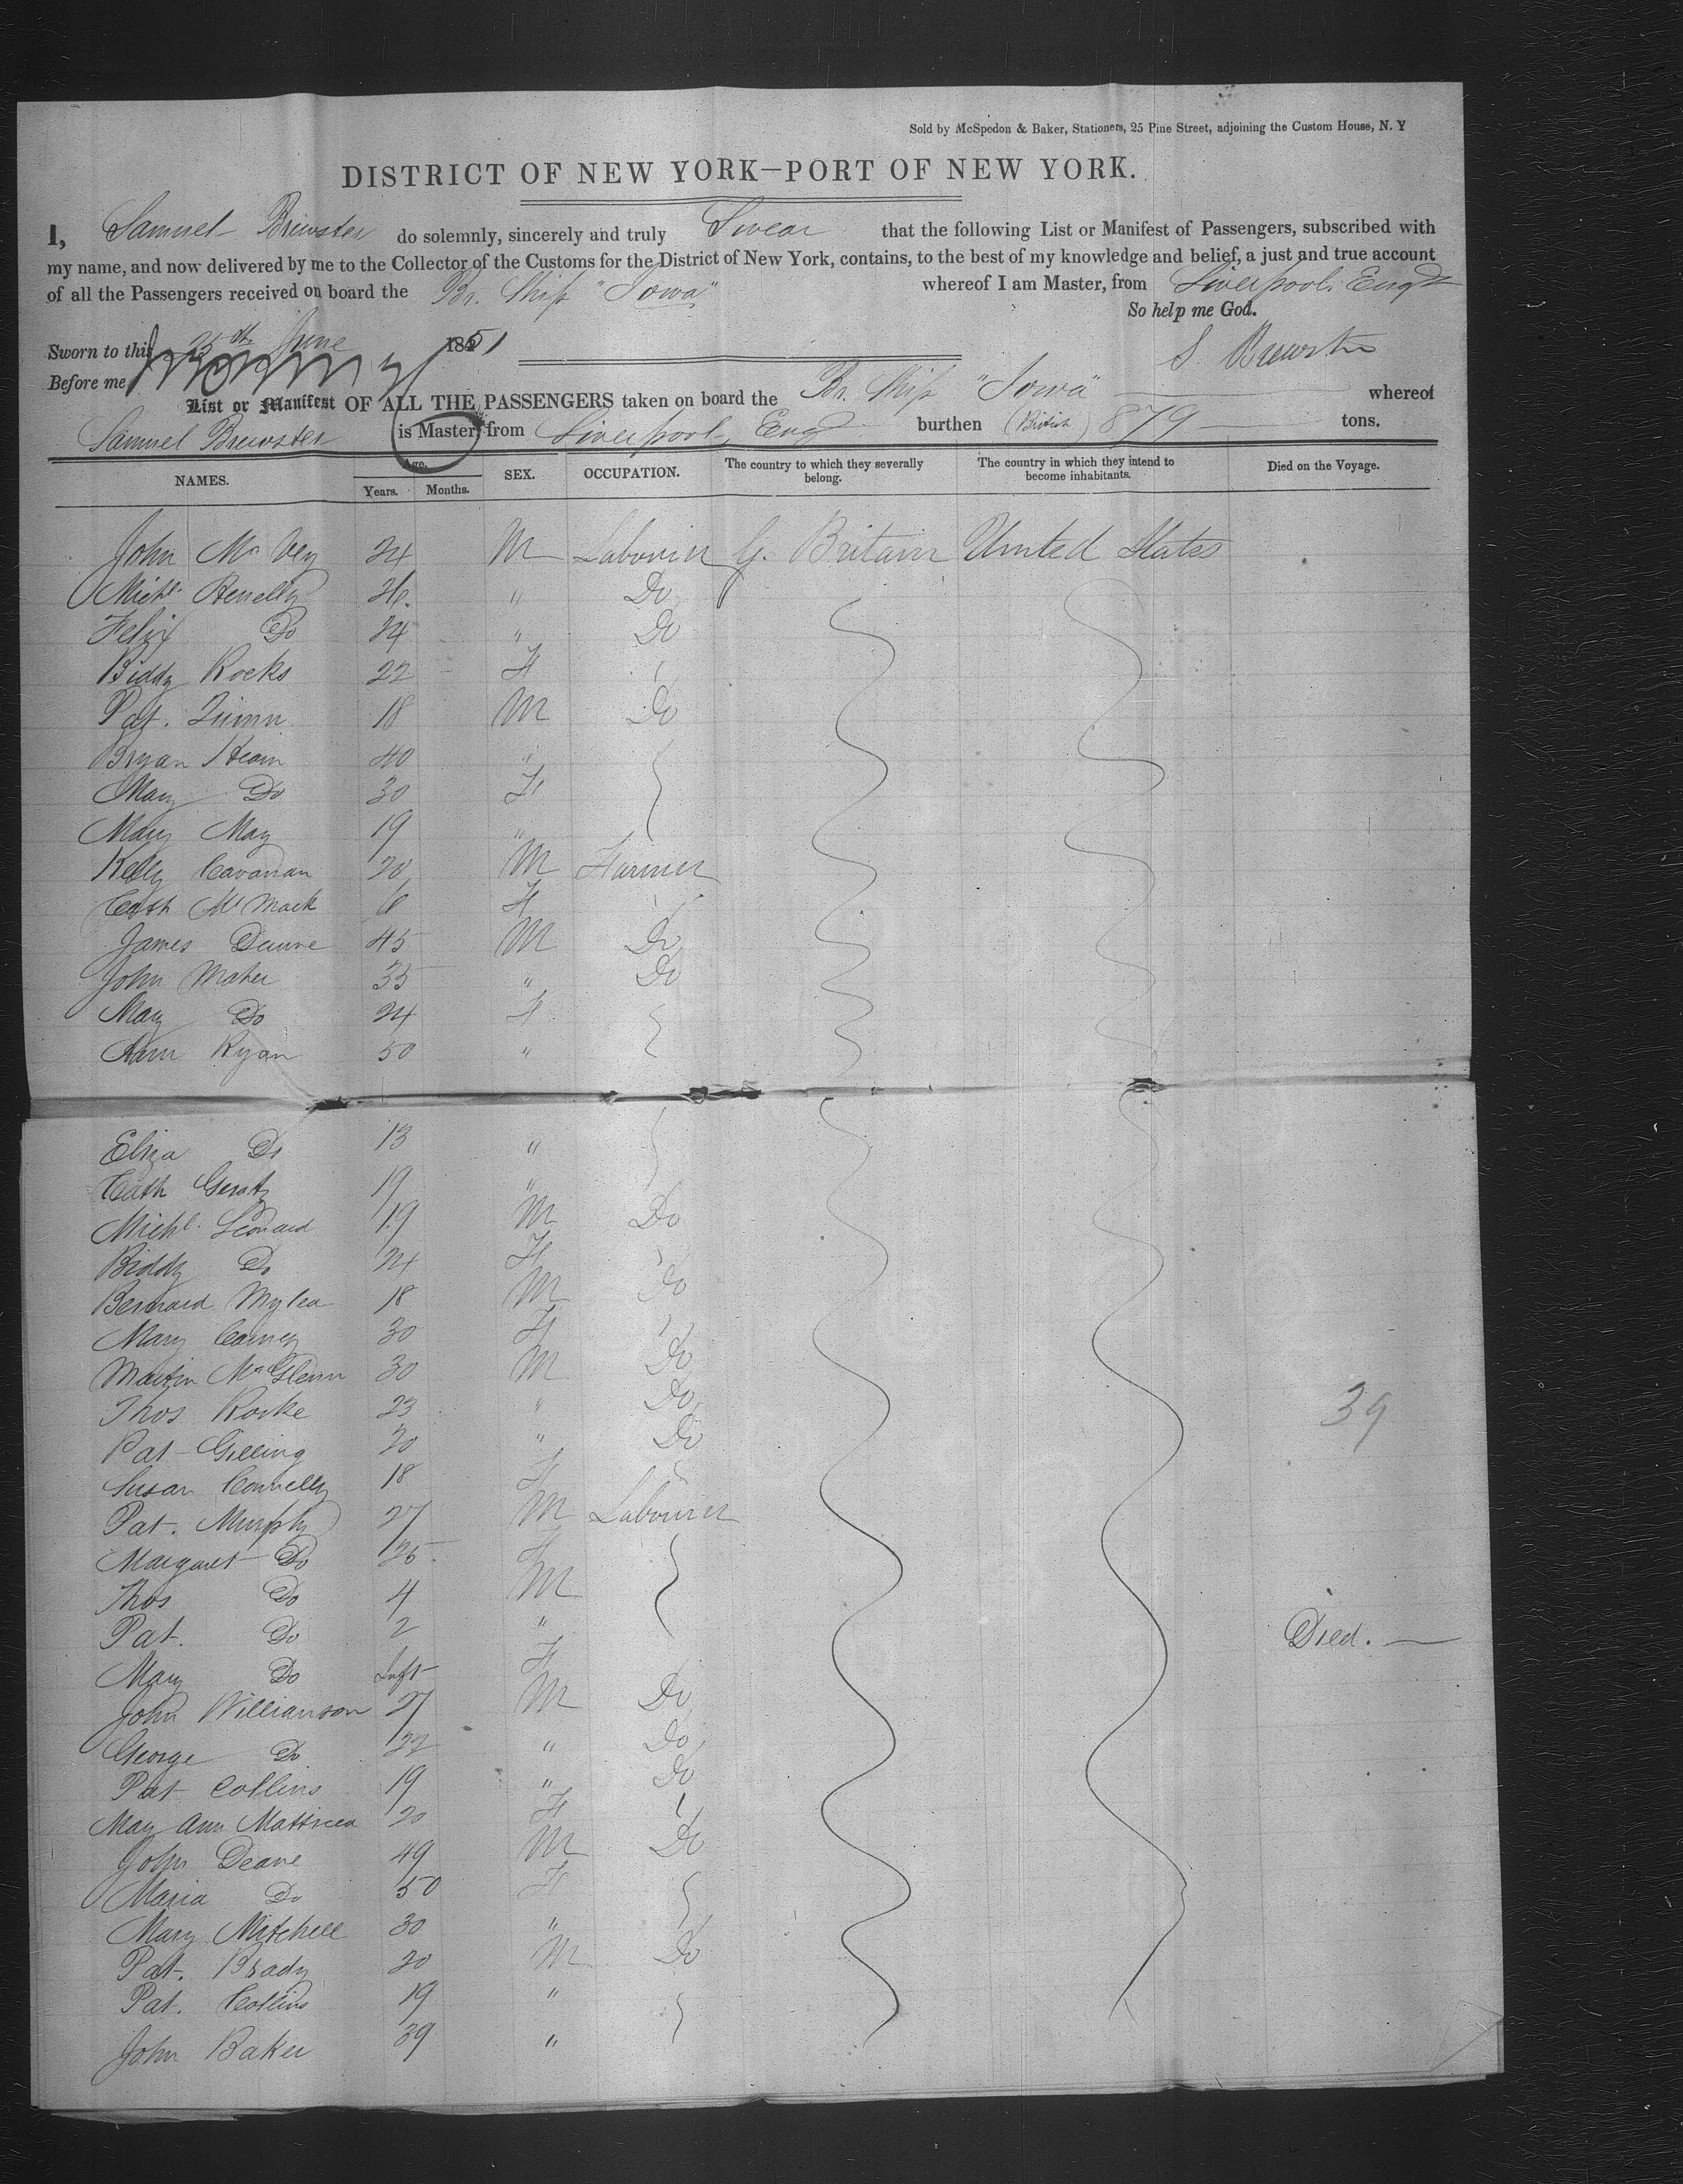 Sold by McSpedon & Baker, Stationers, 25 Pine Street, adjoining the Custom House, N. Y
DISTRICT OF NEW YORK—PORT OF NEW YORK.
I, Samuel Brewster do solemnly, sincerely and truly Swear that the following List or Manifest of Passengers, subscribed with
my name, and now delivered by me to the Collector of the Customs for the District of New York, contains, to the best of my knowledge and belief, a just and true account
of all the Passengers received on board the Br. Ship "Iowa" whereof I am Master, from Liverpool, Engd
So help me God.
Sworn to this 25th June 1851
S. Brewster
Before me
List or Manifest OF ALL THE PASSENGERS taken on board the Br. Ship "Iowa" whereof
Samuel Brewster is Master, from Liverpool, Engd burthen (British) 879 tons.
NAMES. Age. Years. Months. SEX. OCCUPATION. The country to which they severally belong. The country in which they intend to become inhabitants. Died on the Voyage.
John McVey 24 M Labourer G. Britain United States
Michl. 26 " Do
Felix Do 24 " Do
Biddy Rocks 22 F
Pat. Quinn 18 M Do
Bryan Kean 40 "
Mary Do 30 F
Mary May 19 "
Kelly Cavanan 20 M Farmer
Cath McMack 6 F
James Dunne 45 M Do
John Maher 35 " Do
Mary Do 24 F
Ann Ryan 50 "
Eliza Do 13 "
Cath Geraty 19 "
Michl. Leonard 19 M Do
Biddy Do 24 F
Bernard Mylea 18 M Do
Mary Carney 30 F
Martin McGlenn 30 M Do
Thos Rorke 23 " Do
39
Pat Gilling 20 " Do
Susan Connelly 18 F
Pat. Murphy 27 M Labourer
Margaret Do 25 F
Thos Do 4 M
Pat. Do 2 " Died.
Mary Do Inft F
John Willianson 27 M Do
George Do 22 " Do
Pat Collins 19 " Do
May Ann 20 F
John Deane 49 M Do
Maria Do 50 F
Mary Mitchell 30 "
Pat. Brady 20 M Do
Pat. Collins 19 "
John Baker 39 "